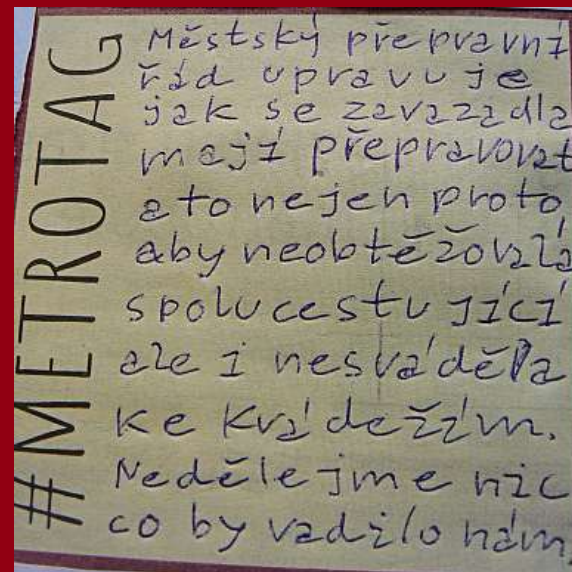 #METROTAG
Městský přepravní
řád upravuje
jak se zavazadla
mají přepravovat
a to nejen proto,
aby neobtěžovala
spolucestující
ale i nesváděla
ke krádežím.
Nedělejme nic
co by vadilo nám.